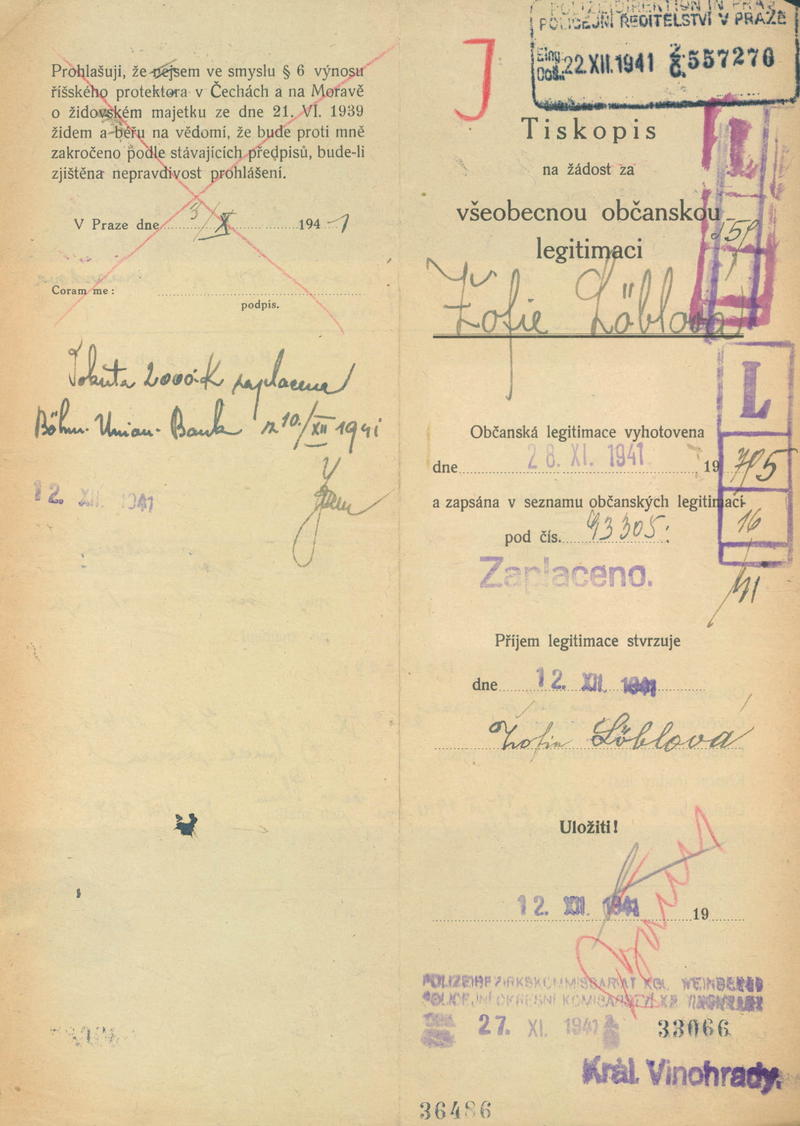 Prohlašuji, že nejsem ve smyslu § 6 výnosu
říšského protektora v Čechách a na Moravě
o židovském majetku ze dne 21. VI. 1939
židem a béřu na vědomí, že bude proti mně
zakročeno podle stávajících předpisů, bude-li
zjištěna nepravdivost prohlášení.
V Praze dne 3/X 1941
Coram me:
podpis.
2000.K zaplacena
Böhm. Union-Bank 10./XII 1941
12. XII. 1941
J
POLIZEIDIREKTION IN PRAG
POLICEJNÍ ŘEDITELSTVÍ V PRAZE
Eing. Doš. 22.XII.1941 Č. 557270
Tiskopis
na žádost za
všeobecnou občanskou
legitimaci
Žofie Löblová
L
L
Občanská legitimace vyhotovena
dne 28. XI. 1941 19
a zapsána v seznamu občanských legitimací
pod čís. 93305
16
Zaplaceno.
Příjem legitimace stvrzuje
dne 12. XII. 1941
Žofie Löblová
Uložiti!
12. XII. 1941 19
POLIZEIBEZIRKSKOMMISSARIAT KGL. WEINBERGE
POLICEJNÍ OKRESNÍ KOMISAŘSTVÍ KR. VINOHRADY
27. XI. 1941 33066
Král. Vinohrady.
36486